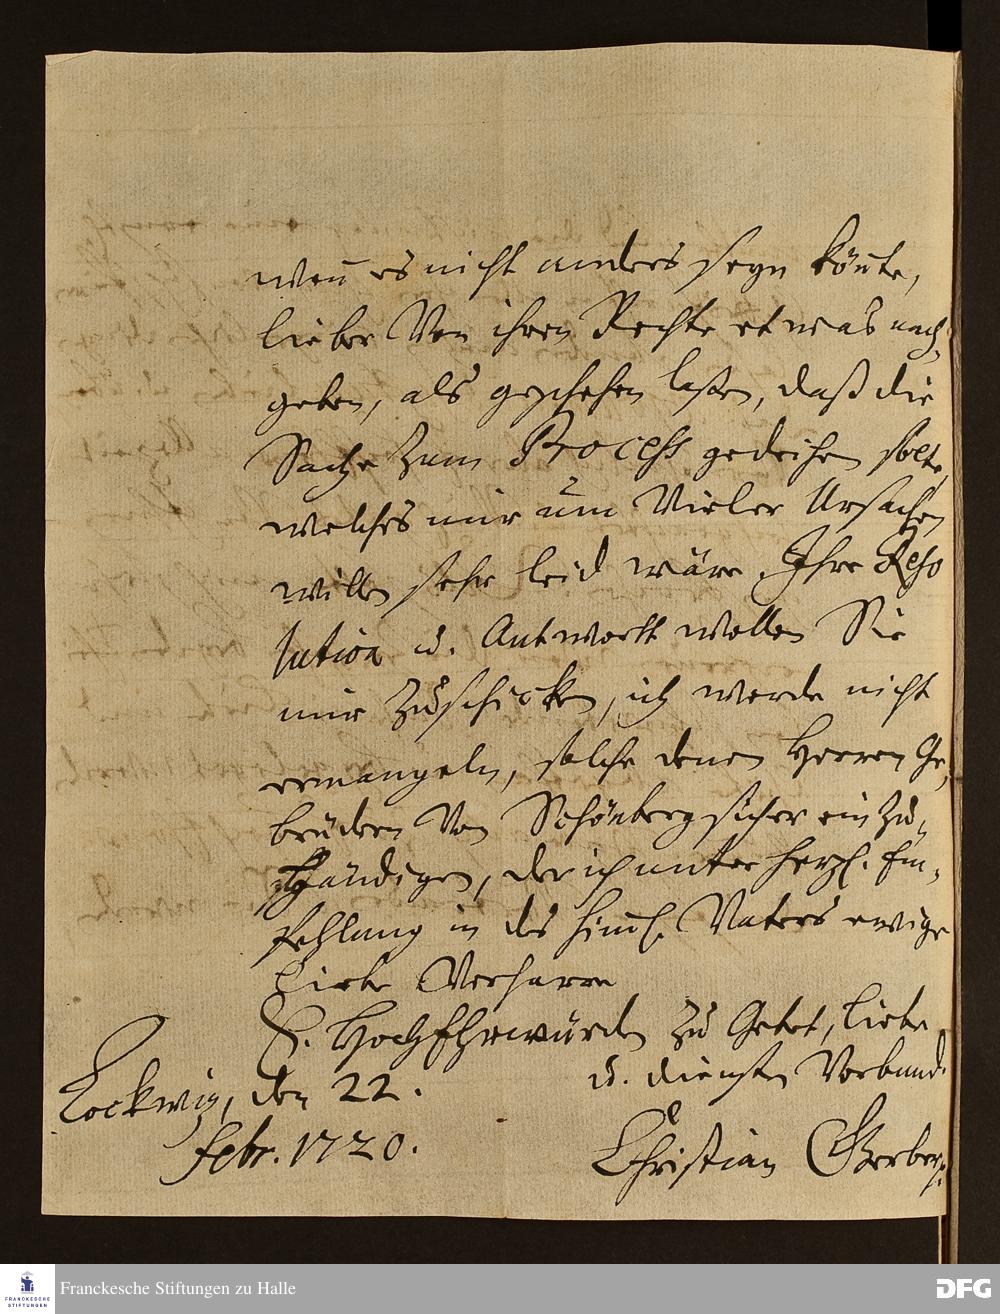 wen̄ es nicht anders seyn kön̄te,
lieber Von ihren Rechte etwas nach,
geben, als geschehen laßen, daß die
Sache zum Process gedeihen solte,
welches mir üm Vieler Ursachen
willen sehr leid wäre. Ihre Reso
lution u. Antwortt wollen Sie
mir zuschicken, ich werde nicht
ermangeln, solche denen Herren Ge,
brüdern Von Schönberg sicher ein zu„
händigen, der ich unter herzl. Em„
pfehlung in des him̄l. Vaters ewige
Liebe Verharre
E. HochEhrwürden zu Gebet, Liebe
u. diensten Verbund.
Lockwiz, den 22.
Febr. 1720.
Christian Gerber
FRANCKESCHE
STIFTUNGEN
Franckesche Stiftungen zu Halle
DFG